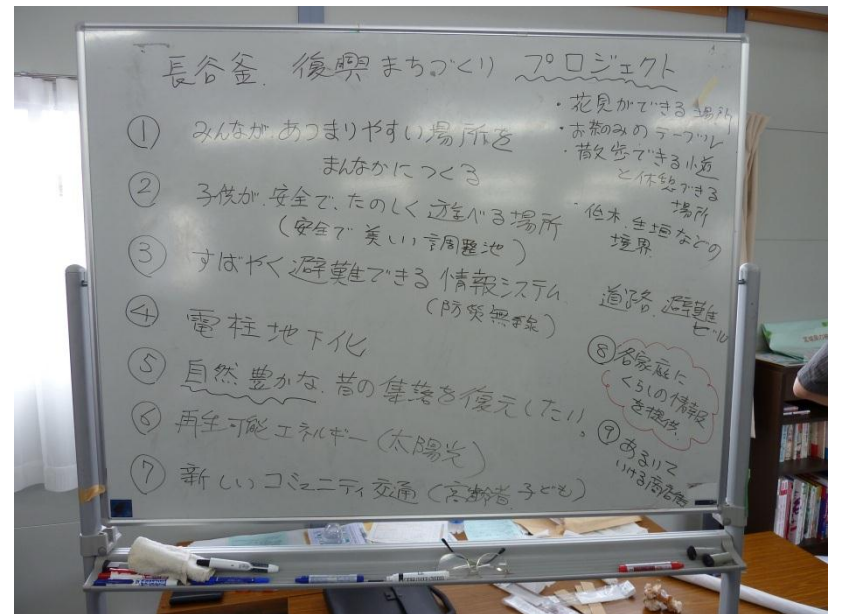 長谷釜 復興まちづくり プロジェクト
① みんなが あつまりやすい場所を
まんなかにつくる
② 子供が、安全で、たのしく遊べる場所
(安全で美しい調整池)
③ すばやく避難できる情報システム
(防災無線)
④ 電柱地下化
⑤ 自然豊かな、昔の集落を復元したい。
⑥ 再生可能エネルギー(太陽光)
⑦ 新しいコミュニティ交通(高齢者、子ども)
・花見ができる場所
・お茶のみのテーブル
・散歩できる小道
と休憩できる
場所
・低木、生垣などの
境界
道路、避難
ビル
⑧ 各家庭に
くらしの情報
を提供
⑨ あるいて
いける商店街